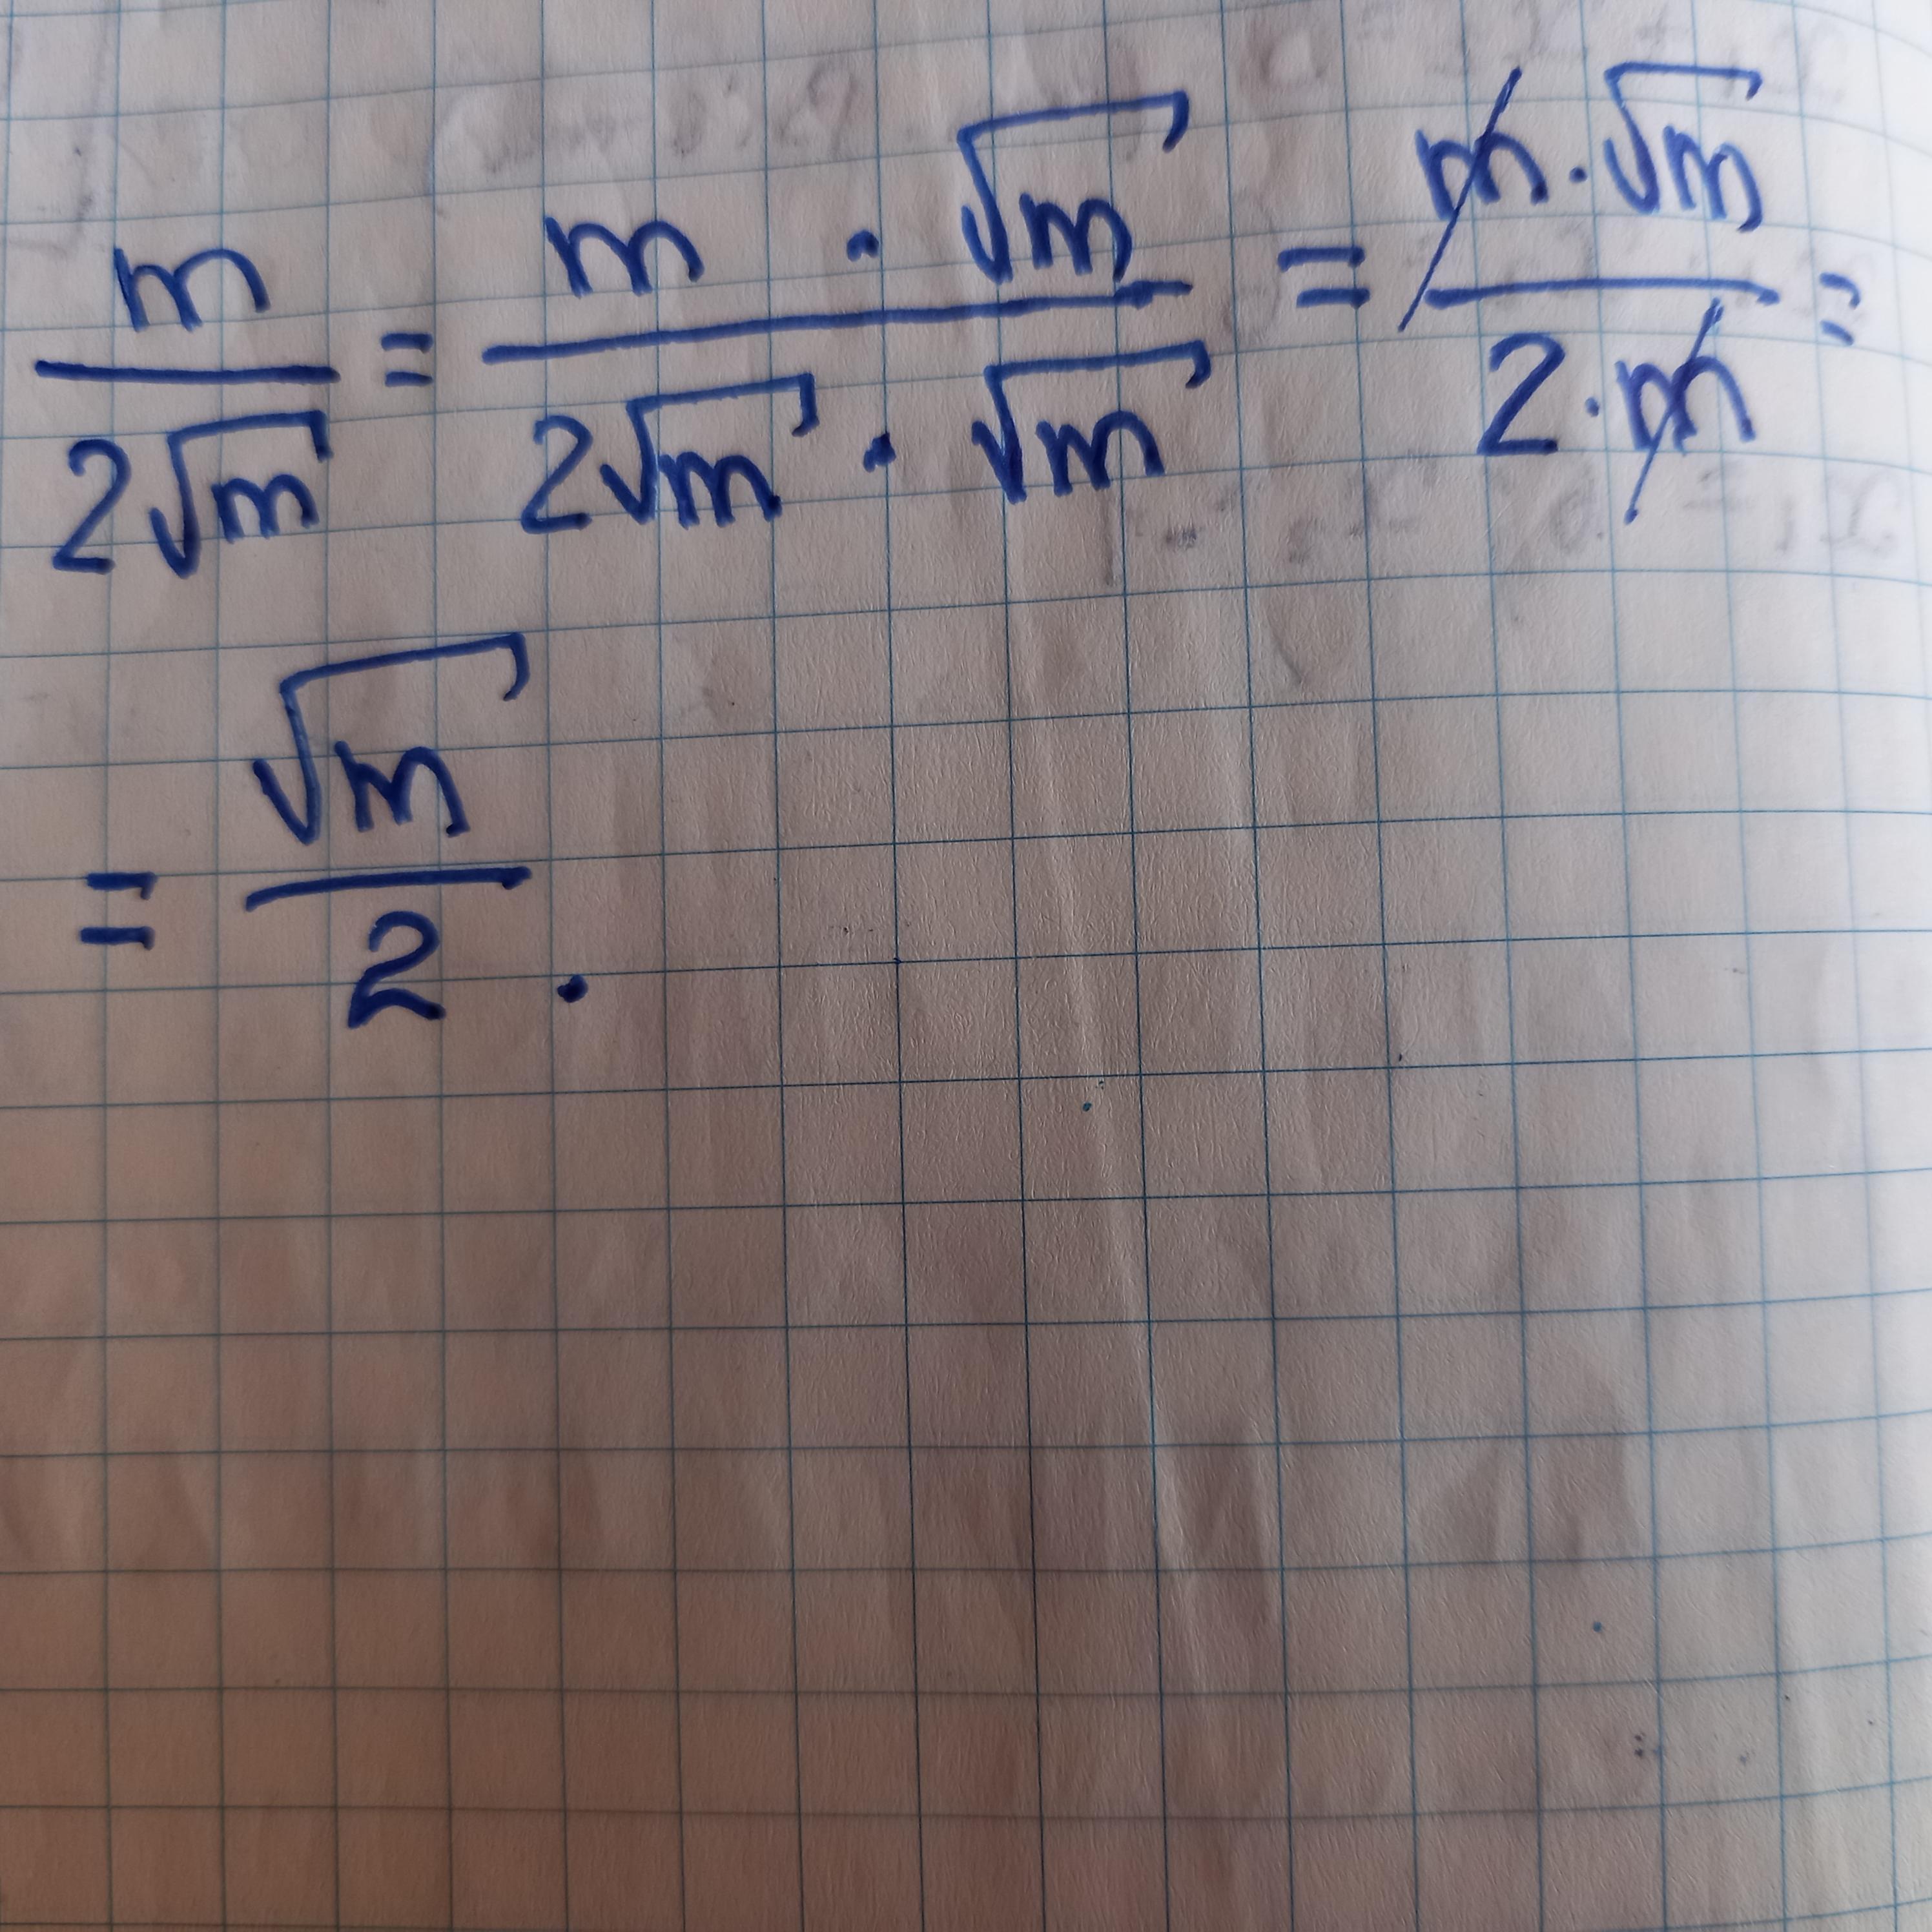 m/2√m = m · √m/2√m · √m = m · √m/2 · m =
= √m/2 .